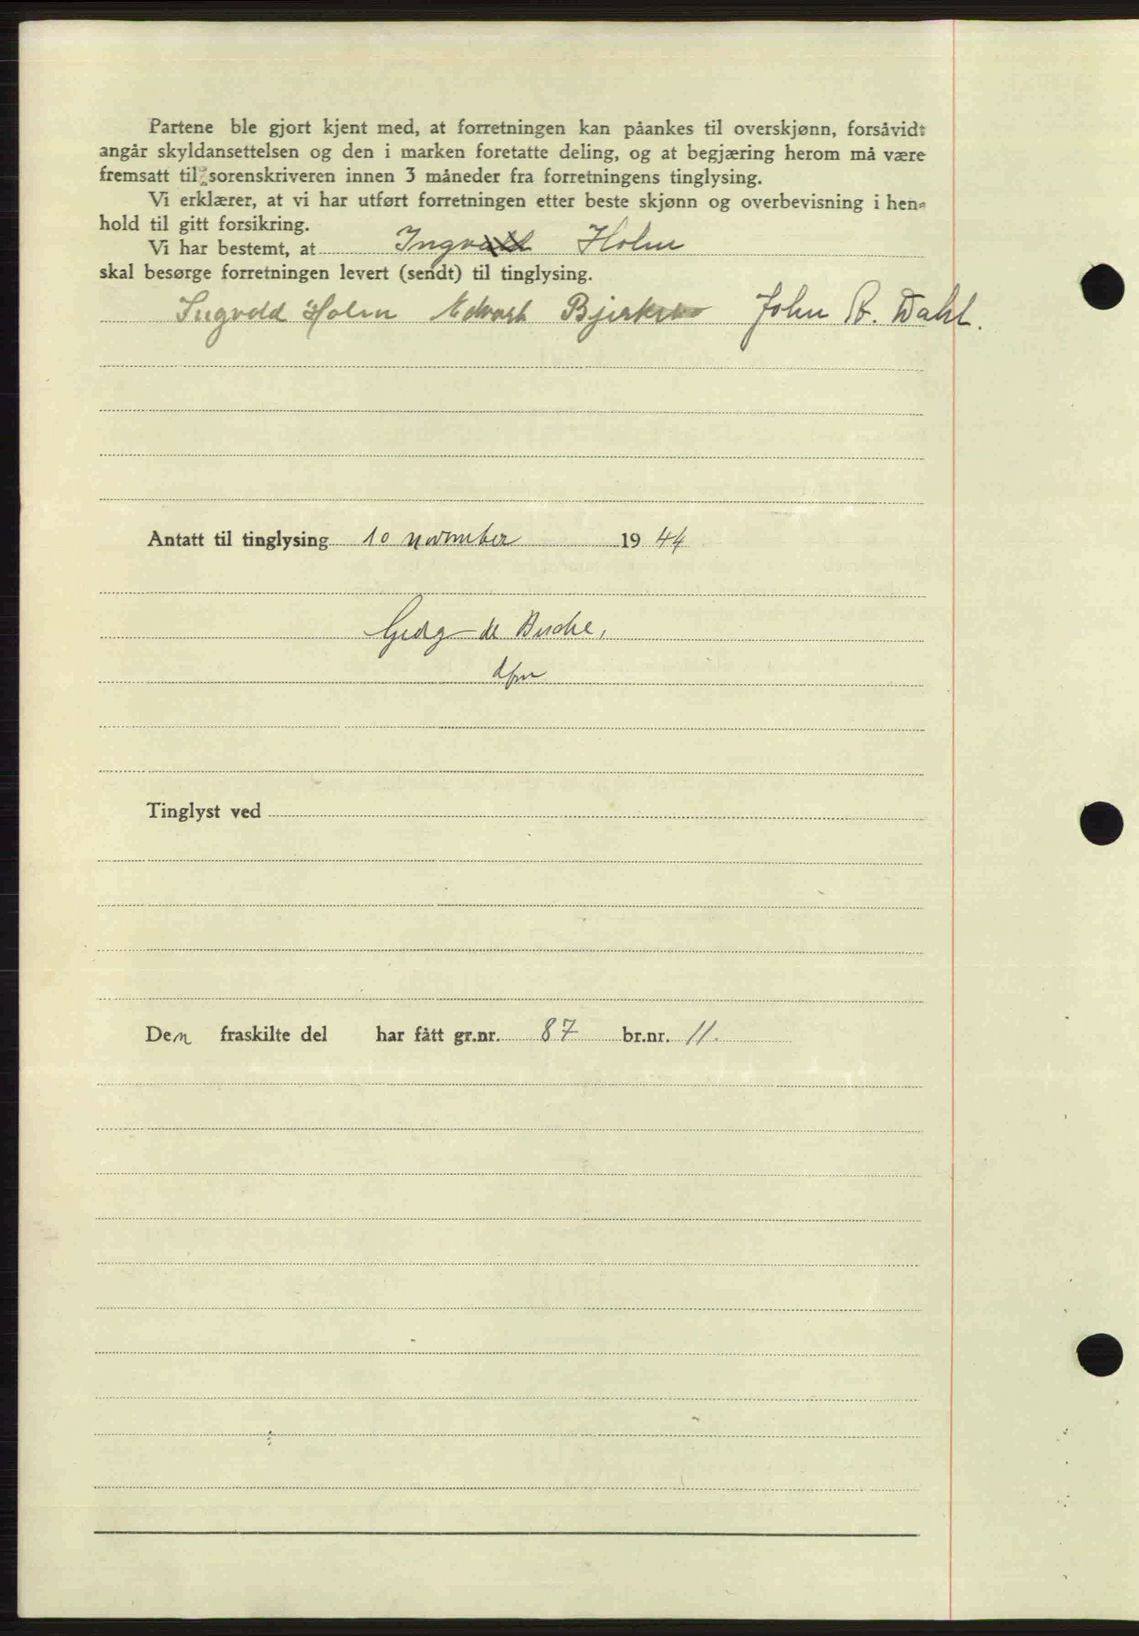 Partene ble gjort kjent med, at forretningen kan påankes til overskjønn, forsåvidt
angår skyldansettelsen og den i marken foretatte deling, og at begjæring herom må være
fremsatt til sorenskriveren innen 3 måneder fra forretningens tinglysing.
Vi erklærer, at vi har utført forretningen etter beste skjønn og overbevisning i hen-
hold til gitt forsikring.
Vi har bestemt, at Ingvald Holm
skal besørge forretningen levert (sendt) til tinglysing.
Ingvald Holm Edvart John A. Dahl.
Antatt til tinglysing 10 november 1944
Georg de Besche,
dfm
Tinglyst ved
Den fraskilte del har fått gr.nr. 87 br.nr. 11.